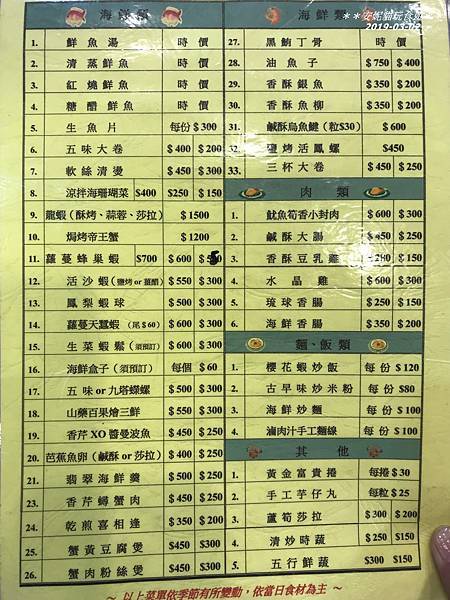 **安妮貓玩食遊**
2019-03-02
海鮮類
1. 鮮魚湯 時價
2. 清蒸鮮魚 時價
3. 紅燒鮮魚 時價
4. 糖醋鮮魚 時價
5. 生魚片 每份 $300
6. 五味大卷 $400 $200
7. 軟絲清燙 $450 $300
8. 涼拌海珊瑚菜 $400 $250 $150
9. 龍蝦(酥烤、蒜蓉、莎拉) $1500
10. 焗烤帝王蟹 $1200
11. 蘿蔓蜂巢蝦 $700 $600
12. 活沙蝦(鹽烤or薑醋) $550 $300
13. 鳳梨蝦球 $500 $300
14. 蘿蔓天蠶蝦(尾$60) $600 $300
15. 生菜蝦鬆(須預訂) $600 $300
16. 海鮮盒子(須預訂) 每個 $60
17. 五味or九塔蝶螺 $500 $300
18. 山藥百果燴三鮮 $550 $300
19. 香芹XO醬曼波魚 $450 $250
20. 芭蕉魚卵(鹹酥or莎拉) $400 $200
21. 翡翠海鮮羹 $500 $250
23. 香芹鱘蟹肉 $450 $250
24. 乾煎喜相逢 $350 $200
25. 蟹黃豆腐煲 $450 $300
26. 蟹肉粉絲煲 $450 $300
海鮮類
27. 黑鮪丁骨 時價
28. 油魚子 $750 $400
29. 香酥銀魚 $350 $200
30. 香酥魚柳 $350 $200
31. 鹹酥烏魚鰎(粒$30) $600
32. 鹽烤活鳳螺 $450
33. 三杯大卷 $450 $250
肉類
1. 魷魚筍香小封肉 $600 $300
2. 鹹酥大腸 $450 $250
3. 香酥豆乳雞 $150
4. 水晶雞 $600 $300
5. 琉球香腸 $250 $150
6. 海鮮香腸 $350 $200
麵、飯類
1. 櫻花蝦炒飯 每份 $120
2. 古早味炒米粉 每份 $80
3. 海鮮炒麵 每份 $100
4. 滷肉汁手工麵線 每份 $100
其他
1. 黃金富貴捲 每捲 $30
2. 手工芋仔丸 每粒 $25
3. 蘆筍莎拉 $300 $200
4. 清炒時蔬 $250 $150
5. 五行鮮蔬 $300 $150
~ 以上菜單依季節有所變動，依當日食材為主 ~